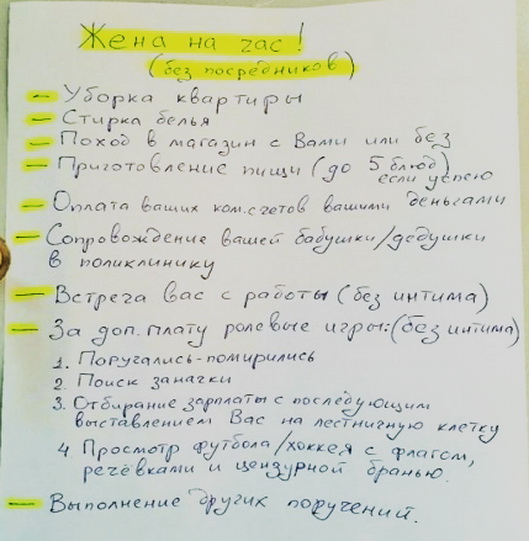 Жена на час!
(без посредников)
— Уборка квартиры
— Стирка белья
— Поход в магазин с Вами или без
— Приготовление пищи (до 5 блюд)
если успею
— Оплата ваших ком.счетов вашими деньгами
— Сопровождение вашей бабушки/дедушки
в поликлинику
— Встреча вас с работы (без интима)
— За доп.плату ролевые игры:(без интима)
1. Поругались-помирились
2. Поиск заначки
3. Отбирание зарплаты с последующим
выставлением Вас на лестничную клетку
4. Просмотр футбола/хоккея с флагом,
речёвками и цензурной бранью.
— Выполнение других поручений.